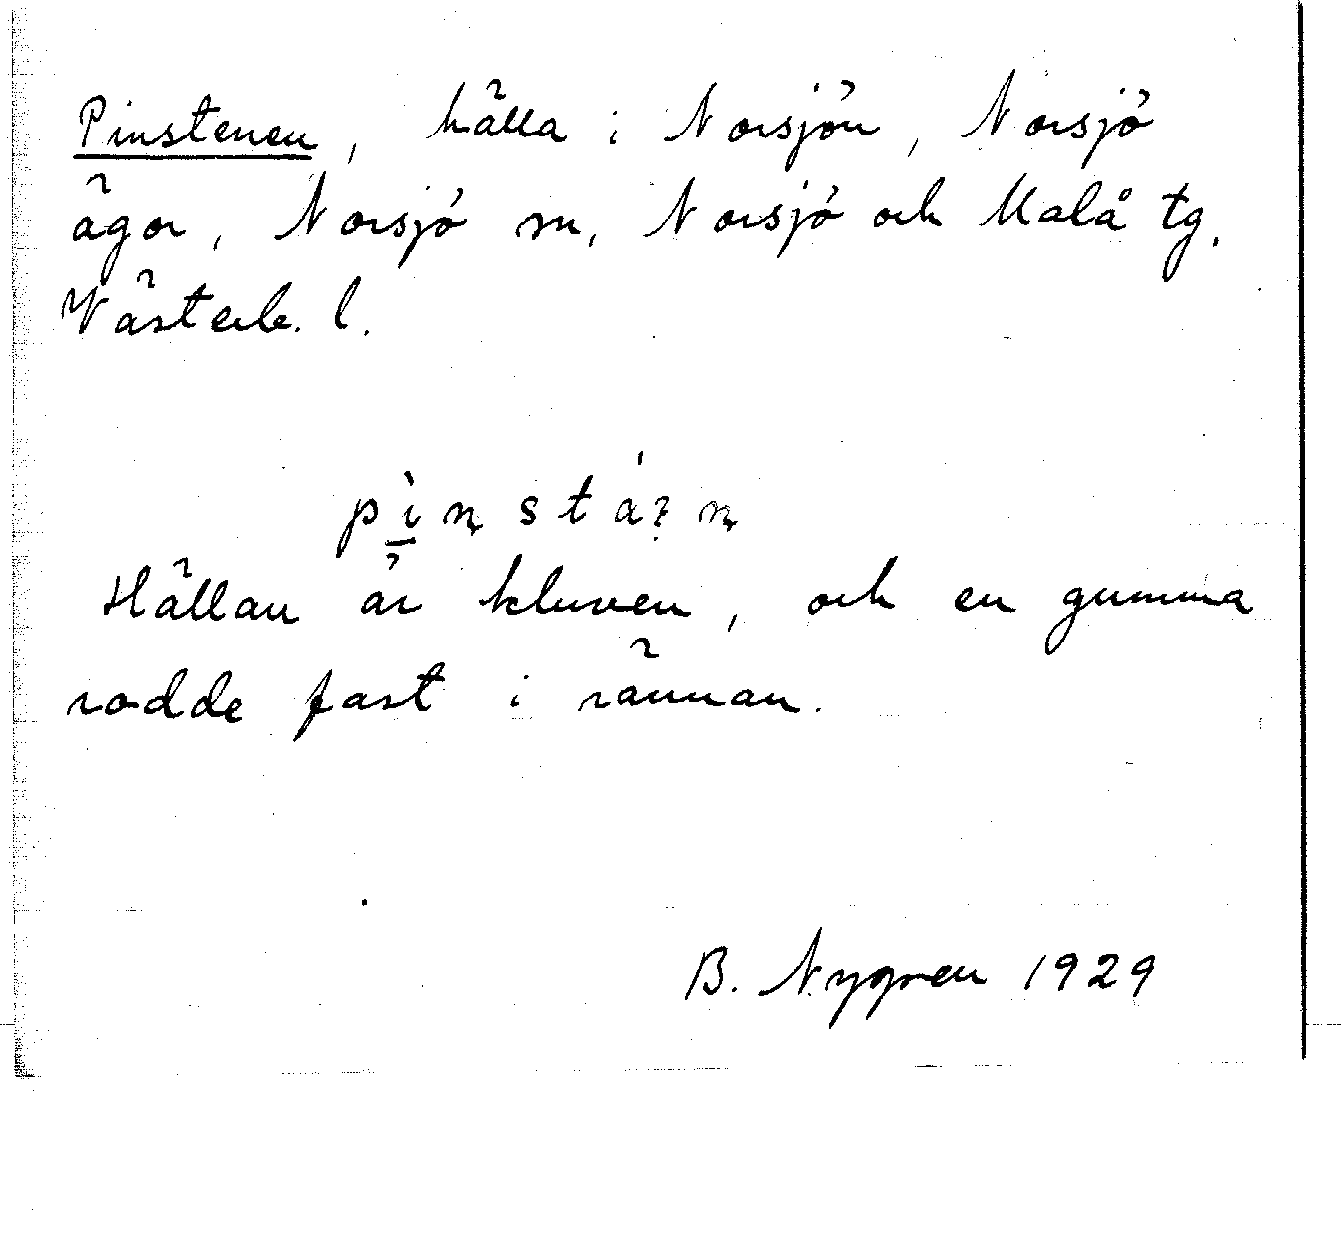 Pinstenen, hälla i Norsjön, Norsjö
ägor, Norsjö sn, Norsjö och Malå tg.
Västerb. l.
Hällan är kluven, och en gumma
rodde fast i rännan.
B. Nygren 1929